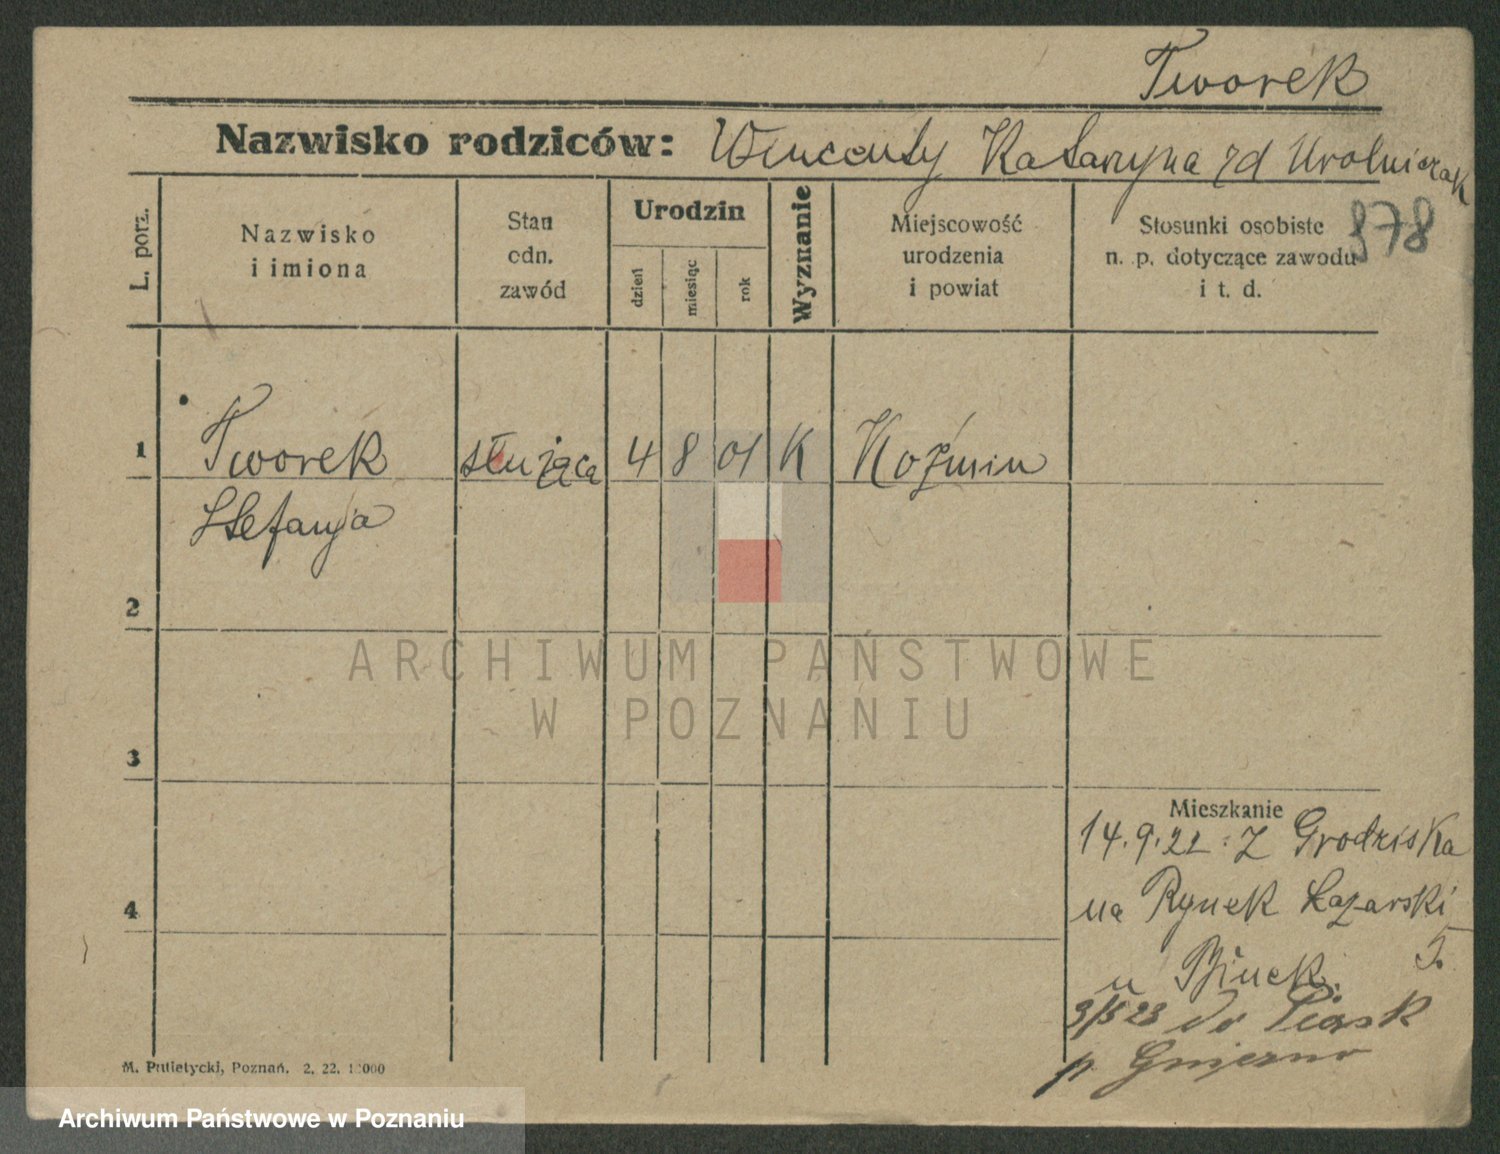 Tworek
Nazwisko rodziców: Wincenty Katarzyna zd Urolniczak
878
L. porz.
Nazwisko
i imiona
Stan
odn.
zawód
Urodzin
dzień
miesiąc
rok
Wyznanie
Miejscowość
urodzenia
i powiat
Stosunki osobiste
n. p. dotyczące zawodu
i t. d.
1
Tworek służąca 4 8 01 K Koźmin
Stefanja
2
ARCHIWUM PAŃSTWOWE
W POZNANIU
3
Mieszkanie
14.9.22. Z Grodziska
4
na Rynek Łazarski
u
3/5 23 do Piask
p. Gniezno
M. Putietycki, Poznań. 2. 22. 1000
Archiwum Państwowe w Poznaniu